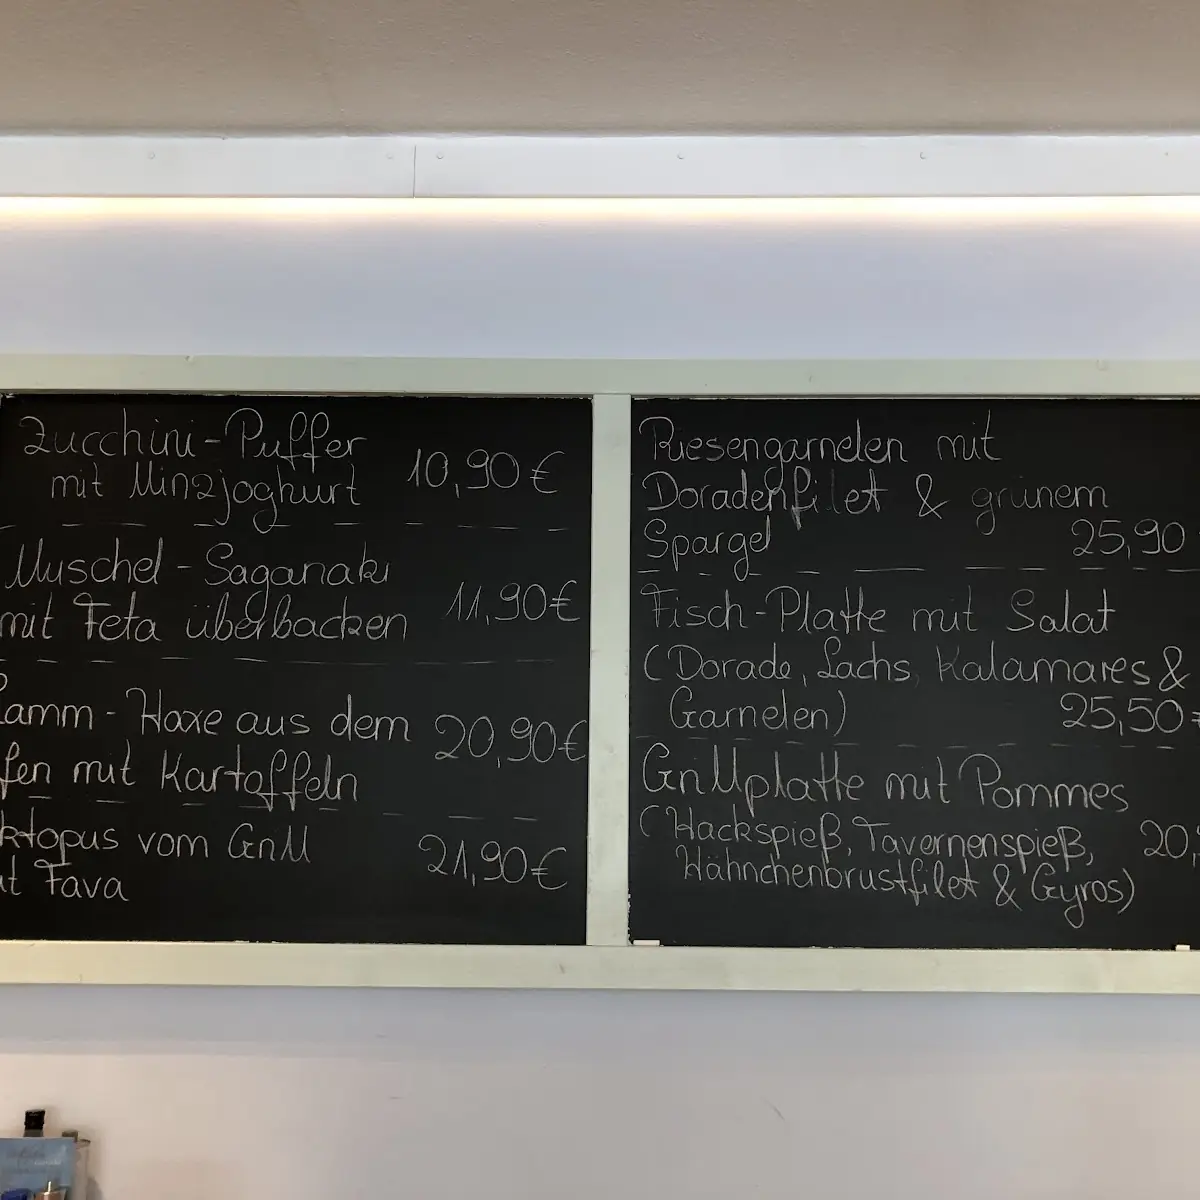 Zucchini-Puffer
mit Minzjoghurt 10,90€
Muschel-Saganaki
mit Feta überbacken 11,90€
Lamm-Haxe aus dem
fen mit Kartoffeln 20,90€
ktopus vom Grill
Fava 21,90€
Riesengarnelen mit
Doradenfilet & grünem
Spargel 25,90
Fisch-Platte mit Salat
(Dorade, Lachs, Kalamares &
Garnelen) 25,50€
Grillplatte mit Pommes
(Hackspieß, Tavernenspieß, 20,
Hähnchenbrustfilet & Gyros)